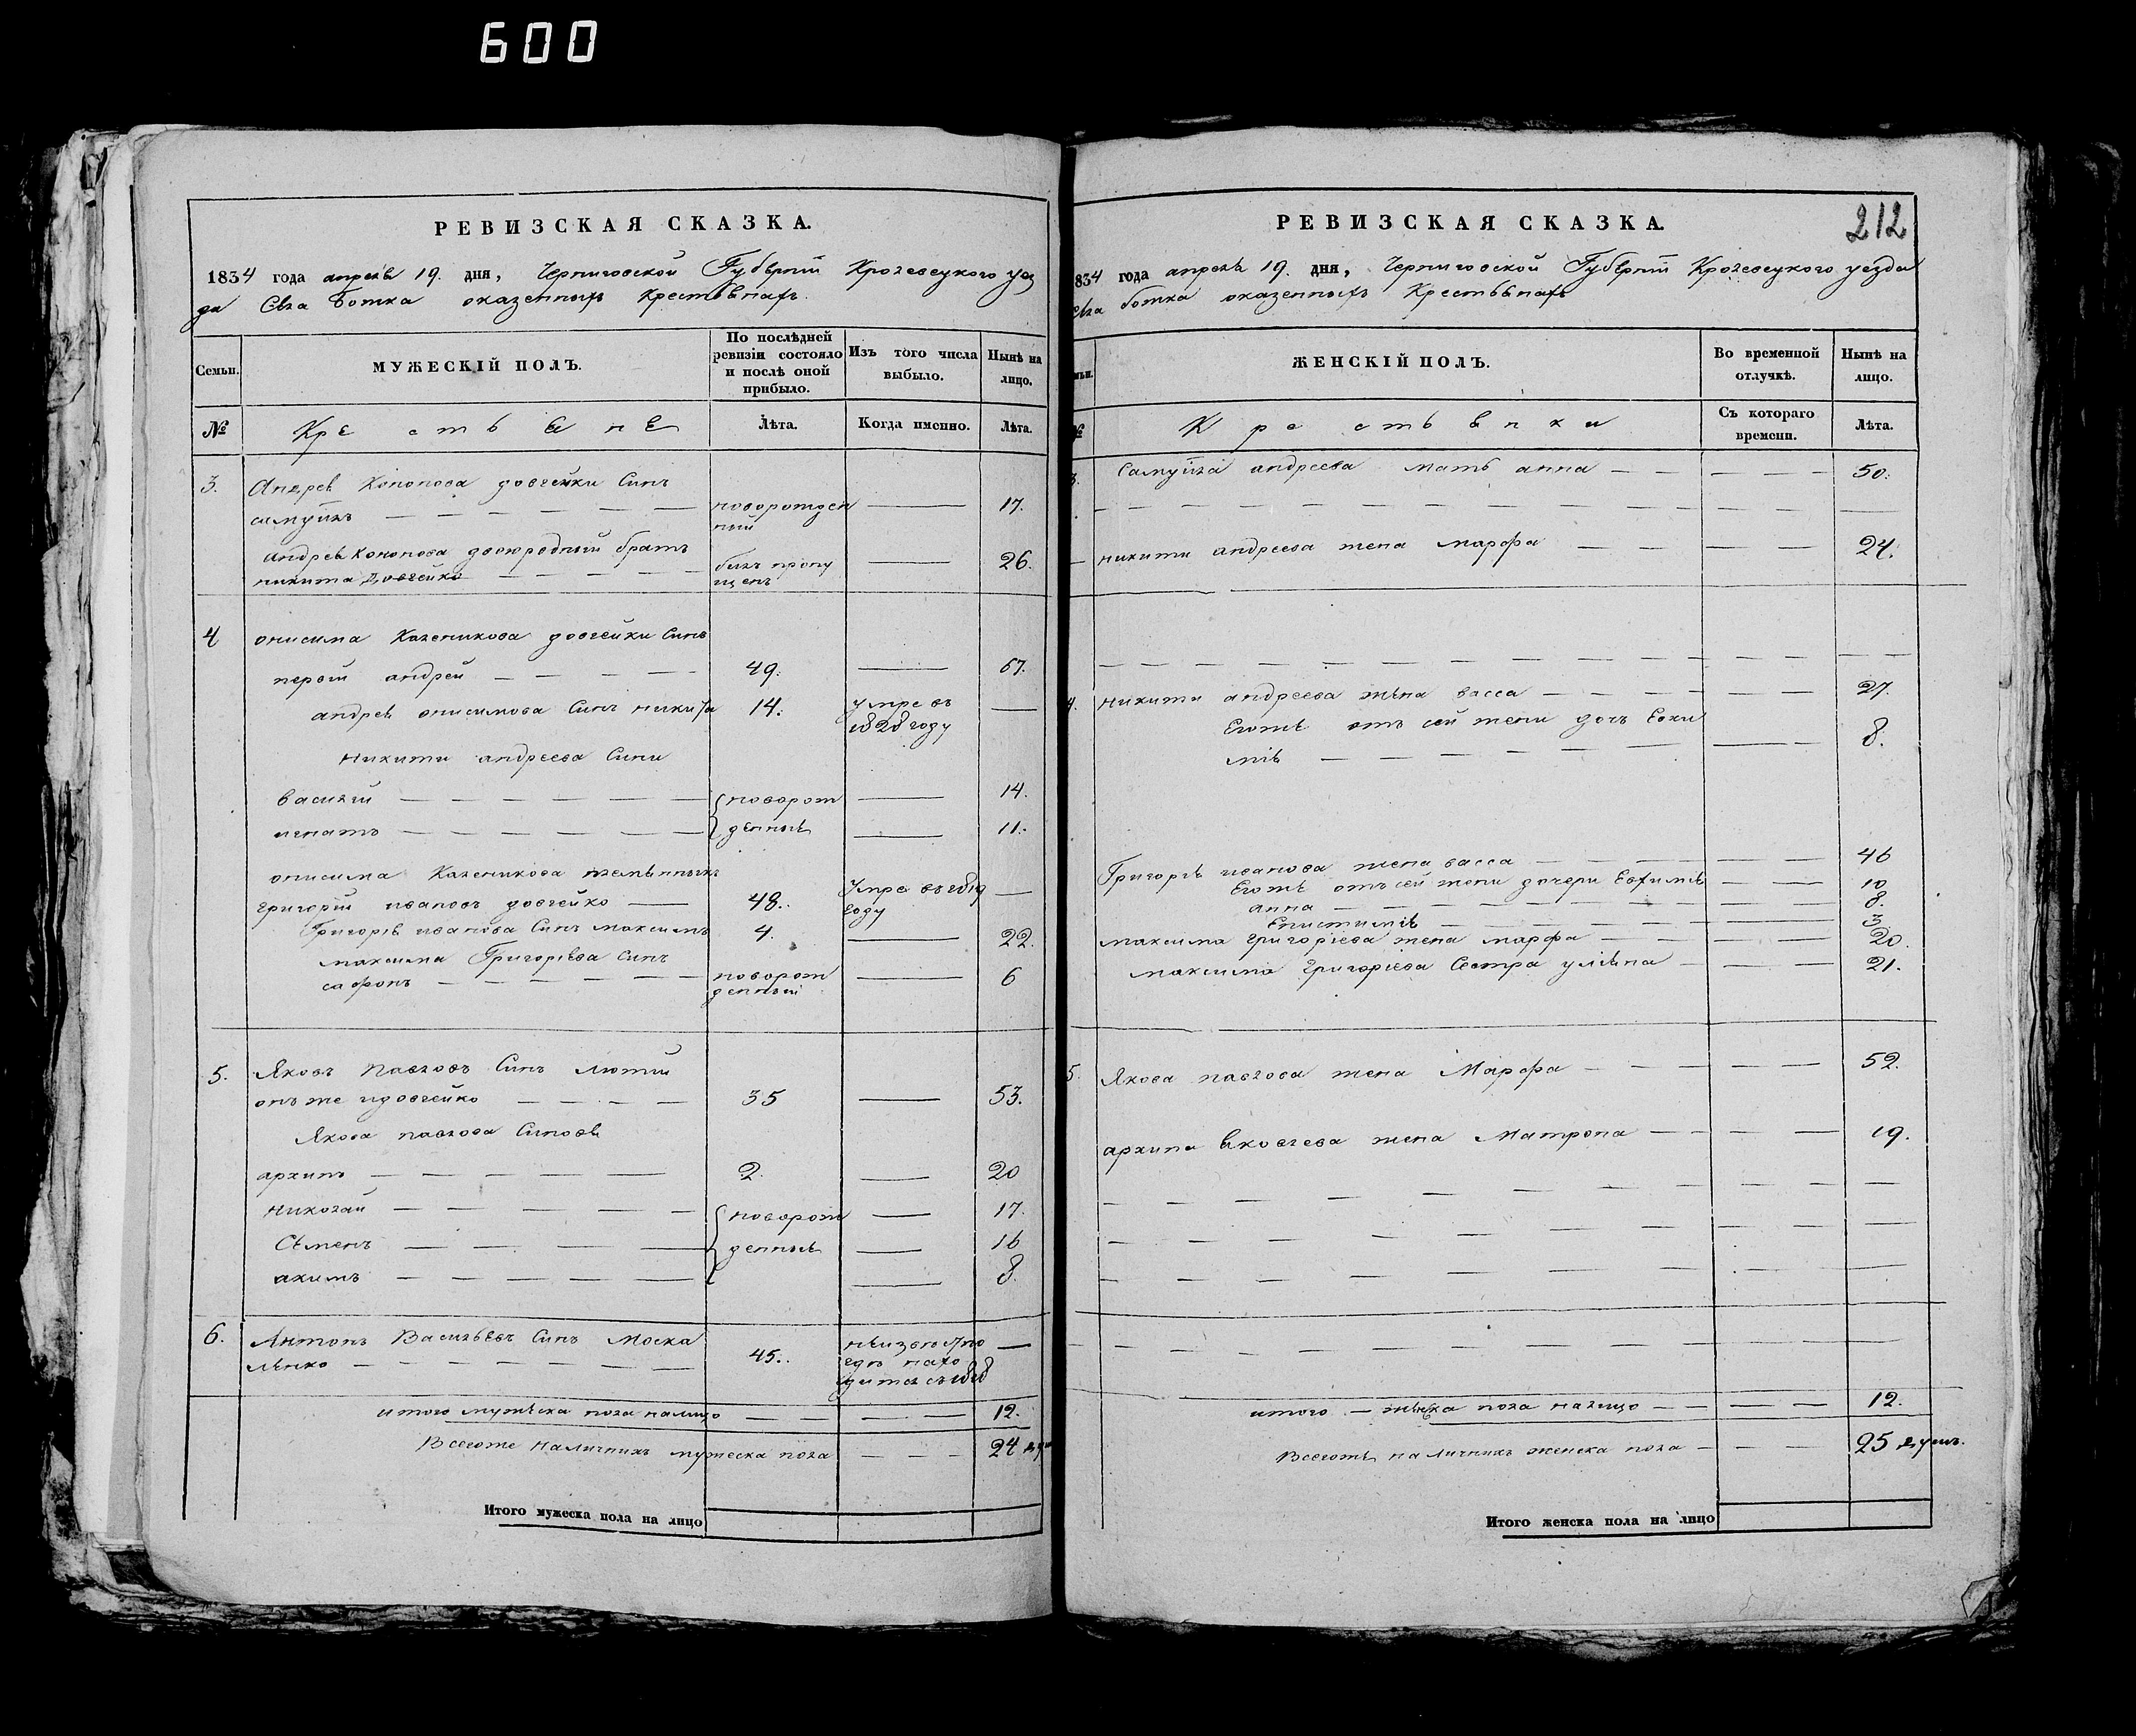 600
РЕВИЗСКАЯ СКАЗКА.
1834 года апреля 19. дня, Черниговской Губернїи Кролевецкого уез
да Села Ботка оказенныхъ Крестьянахъ.
Семьи.
МУЖЕСКІЙ ПОЛЪ.
По послѣдней
ревизіи состояло
и послѣ оной
прибыло.
Изъ того числа
выбыло.
Нынѣ на
лицо.
№
Крестьяне
Лѣта.
Когда именно.
Лѣта.
3. Андрея Кононова довгейки Синъ
самуйлъ — новорожден 17.
ный
андрея Кононова двоюродный братъ
никита Довгейко — билъ пропу 26.
щенъ
4 онисима довгейки Синъ
первій андрей — 49. — 67.
андрея онисимова Синъ никита 14. умре въ —
1828 году
Никити андреева Сини
василій — новорож — 14.
игнатъ — денные — 11.
онисима племянникъ
григорій ивановъ довгейко — 48. Умре въ 1819 —
году
Григорія иванова Синъ максимъ 4. — 22.
максима Григоріева Синъ
сафронъ — новорож — 6
денный
5. Яковъ Павловъ Синъ Лютий
онъ же идовгейко — 35 — 53.
Якова павлова Синовя
архипъ — 2. — 20
николай — новорож — 17.
Семенъ — денные — 16
акимъ — 8.
6. Антонъ Васильевъ Синъ Моска
ленко — 45. неизвястно —
гдя нахо
дится съ 1818
итого мужеска пола налицо — 12.
Всегоже наличнихъ мужеска пола — 24 душ
Итого мужеска пола на лицо
РЕВИЗСКАЯ СКАЗКА.
212
834 года апреля 19. дня, Черниговской Губернїи Кролевецкого уезда
села ботка оказенныхъ Крестьянахъ
ЖЕНСКІЙ ПОЛЪ.
Во временной
отлучкѣ.
Нынѣ на
лицо.
№
Крестьянки
Съ котораго
времени.
Лѣта.
3. Самуйла андреева мать анна — 50.
никити андреева жена марфа — 24.
4. Никити андреева жена васса — 27.
Егоже отъ сей жени дочъ Евки
мія — 8.
Григорія иванова жена васса — 46
Егоже отъ сей жени дочери Евфимія — 10
анна — 8.
Епистимія — 3
максима григоріева жена марфа — 20.
максима григоріева Сестра уліяна — 21.
5. Якова павлова жена Марфа — 52.
архипа яковлева жена Матрона — 19.
итого — женска пола налицо — 12.
Всегоже наличнихъ женска пола — 25 душъ.
Итого женска пола на лицо